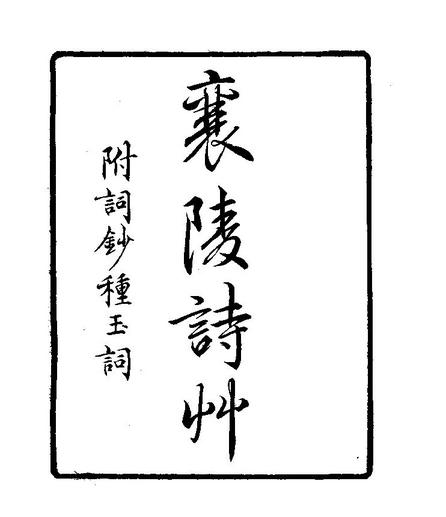 襄陵詩艸
附詞鈔種玉詞